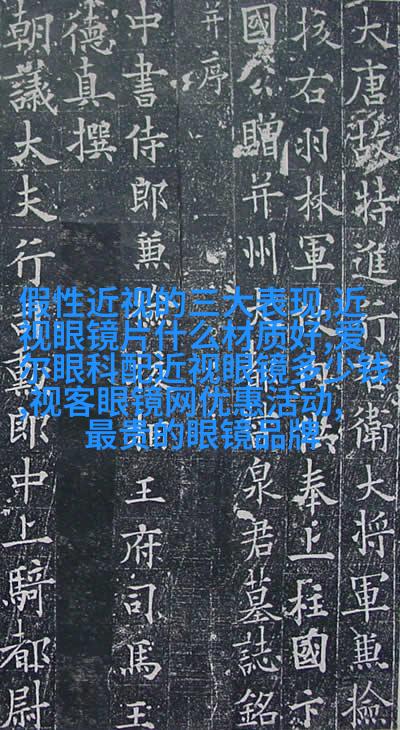 大唐故特進行衛大將軍兼撿
挍右羽林軍奉上柱國卞
國公贈并州大都泉君墓誌銘
并序
中書侍郎兼撿相王府司馬王
德真撰
朝議大夫行司勳郎中上騎都尉
假性近视的三大表现,近
视眼镜片什么材质好,爱
尔眼科配近视眼镜多少钱
,视客眼镜网优惠活动,
最贵的眼镜品牌